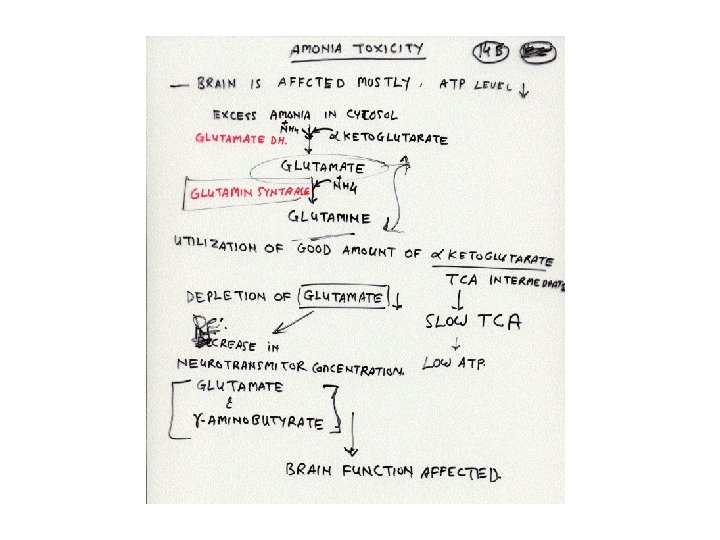 AMONIA TOXICITY 14B
— BRAIN IS AFFCTED MOSTLY. ATP LEVEL ↓
EXCESS AMONIA IN CYTOSOL
GLUTAMATE DH. +NH4 α KETOGLUTARATE
GLUTAMATE
GLUTAMIN SYNTHASE +NH4
GLUTAMINE
UTILIZATION OF GOOD AMOUNT OF α KETOGLUTARATE
TCA INTERMEDIATE
DEPLETION OF GLUTAMATE ↓
SLOW TCA
DECREASE IN
NEUROTRANSMITOR CONCENTRATION. LOW ATP.
GLUTAMATE
&
γ-AMINOBUTYRATE
BRAIN FUNCTION AFFECTED.